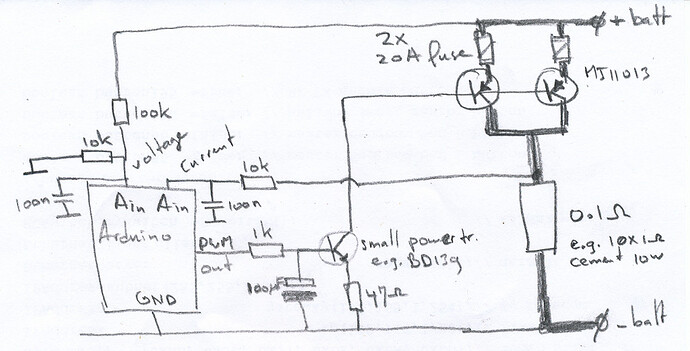 + batt
2x
20A fuse
MJ11013
100k
10k
voltage
Current
10k
100n
Ain Ain
100n
Arduino
PWM
out
1k
small power tr.
e.g. BD139
0.1Ω
e.g. 10x1Ω
cement 10w
100µ
47Ω
GND
- batt